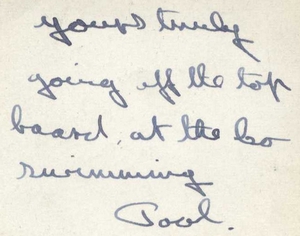 yours truly
going off the top
board, at the bo
swimming
Pool.